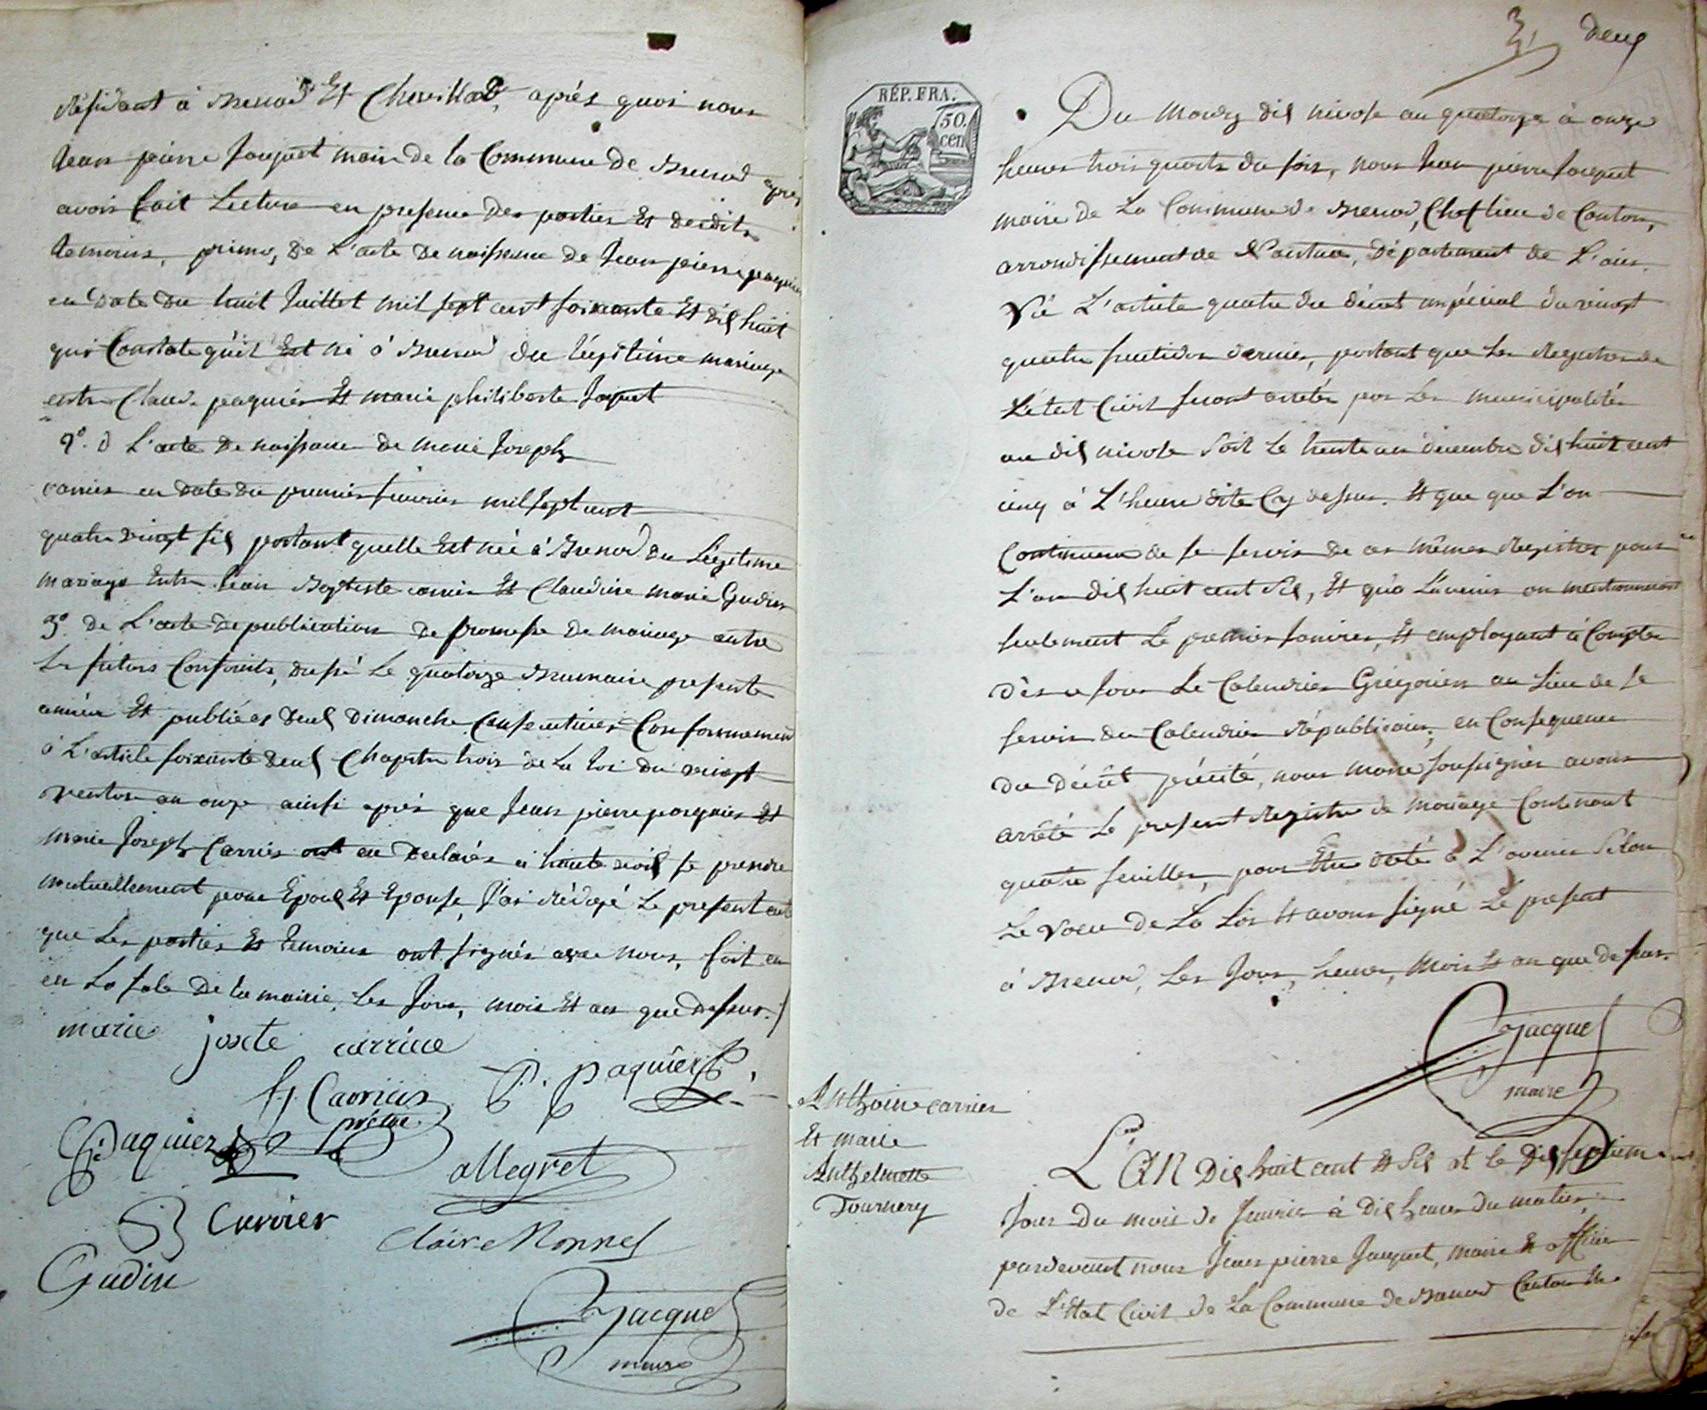 résidant à Brenod Et Chevillard, après quoi nous
Jean pierre Jacquet maire de la Commune de Brenod après
avoir fait Lecture en presence des parties Et desdits
temoins, primo, de L'acte de naissance de Jean pierre paquier
en date du huit Juillet mil sept cent soixante Et dix huit
qui Constate qu'il Est né à Brenod du légitime mariage
entre Claude paquier Et marie philiberte Jaquet
2° d L'acte de naissance de marie Joseph
carrier en date du premier fevrier mil sept cent
quatre vingt six portant quelle Est née à Brenod du Légitime
mariage Entre Jean Baptiste carrier Et Claudine marie Gudin
3° de L'acte de publication de promesse de mariage entre
Les futurs Conjoints, dressé Le quatorze Brumaire presente
année Et publiées deux dimanche Consecutives Conformement
à L'article soixante deux Chapitre trois de La loi du vingt
ventose an onze ainsi après que Jean pierre paquier Et
marie Joseph Carrier ont eu declarés à haute voix se prendre
mutuellement pour Epoux Et Epouse, J'ai rédigé Le present acte
que Les parties Et temoins ont signés avec nous, fait en
en La sale de la mairie, Les Jour, mois Et an que dessus./
marie josete carriere
Carrier P. paquier
prêtre
Paquier
allegret
B Carrier
Claire Monnet
Gudin
Jacquet
maire
3, deux
RÉP. FRA.
50.
cen.
Du mardy dix nivose an quatorze à onze
heures trois quarts du soir, nous Jean pierre Jacquet
maire de La Commune de Brenod, Chef lieu de Canton,
arrondissement de Nantua, département de L'ain.
Vû L'article quatre du décret impérial du vingt
quatre fructidor dernier, portant que Les Registres de
L'état Civil seront arretés par Les municipalités
au dix nivose soit Le trente un decembre dix huit cent
cinq à L'heure dite Cy dessus. Et que que L'on
Continuera de se servir de ces mêmes Registres pour
L'an dix huit cent six, Et qu'à L'avenir on mentionneroit
seulement Le premier Janvier, Et employant à Compter
dès ce Jour Le Calendrier Grégorien au Lieu de se
servir du Calendrier Républicain; en Consequence
du décrêt précité, nous maire soussigner avons
arrêté Le present Registre de mariage Contenant
quatre feuilles, pour Etre cité à L'avenir Sélon
Le voeu de La Loi Et avons signé Le present
à Brenod, Les Jour, heure, mois Et an que dessus.
Jacquet
maire
Anthoine carrier
Et marie
Anthelmette
Tournery
L'AN dix huit cent Et six et le dix septieme
Jour du mois de Janvier à dix heures du matin,
pardevant nous Jean pierre Jacquet, maire Et officier
de L'Etat Civil de La Commune de Brenod Canton